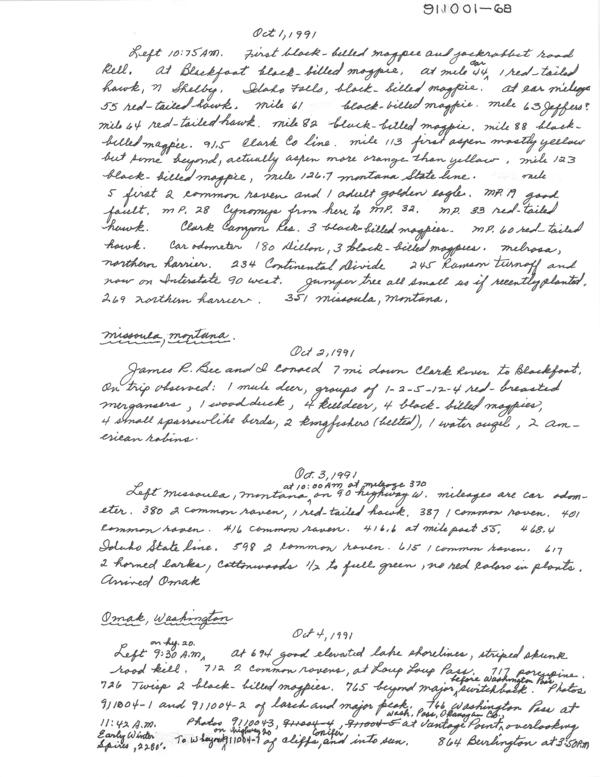 911001-68
Oct 1, 1991
Left 10:75 AM. First black-billed magpie and jackrabbit road
kill. At Blackfoot black-billed magpie, at mile car 44, 1 red-tailed
hawk, N Shelby, Idaho Falls, black-billed magpie. At car mileage
55 red-tailed hawk. Mile 61 black-billed magpie. Mile 63 Jeffers?
mile 64 red-tailed hawk. Mile 82 black-billed magpie, mile 88 black-
billed magpie. 91.5 Clark Co line. Mile 113 first aspen mostly yellow
but some beyond, actually aspen more orange than yellow. Mile 123
black-billed magpie, mile 126.7 Montana State line. mile
5 first 2 common raven and 1 adult golden eagle. MP. 19 good
fault. MP. 28 Cynomys from here to MP. 32. MP. 33 red-tailed
hawk. Clark Canyon Res. 3 black-billed magpies. MP. 60 red-tailed
hawk. Car odometer 180 Dillon, 3 black-billed magpies. Melrosa,
northern harrier. 234 Continental Divide 245 turnoff and
now on Interstate 90 west. Juniper tree all small as if recently planted.
269 northern harrier. 351 Missoula, Montana.
Missoula, Montana.
Oct 2, 1991
James R. Bee and I canoed 7 mi down Clark River to Blackfoot.
On trip observed: 1 mule deer, groups of 1-2-5-12-4 red-breasted
mergansers, 1 wood duck, 4 killdeer, 4 black-billed magpies,
4 small sparrowlike birds, 2 kingfishers (belted), 1 water ouzel, 2 Am-
erican robins.
Oct. 3, 1991
Left Missoula, Montana at 10:00 AM at mileage 370 on 90 highway W. mileages are car odom-
eter. 380 2 common raven, 1 red-tailed hawk. 387 1 common raven. 401
common raven. 416 common raven. 416.6 at mile post 55. 468.4
Idaho State line. 598 2 common raven. 615 1 common raven. 617
2 horned larks, cottonwoods 1/2 to full green, no red colors in plants.
Arrived Omak
Omak, Washington
Oct 4, 1991
Left 9:30 A.M. on hy. 20. At 694 good elevated lake shorelines, striped skunk
road kill. 712 2 common ravens, at Loup Loup Pass. 717 porcupine.
726 Twisp 2 black-billed magpies. 765 beyond major switchback before Washington Pass. Photos
911004-1 and 911004-2 of larch and major peak. 766 Washington Pass at
11:42 A.M. Photos 911004-3, 911004-4, 911004-5 at Vantage Point, Wash. Pass, Okanogan Co., overlooking
Early Winter
Spires, 2280'. To W beyond on highway 20 911004-7 of cliffs, conifer, and into sun. 864 Burlington at 3:50 PM